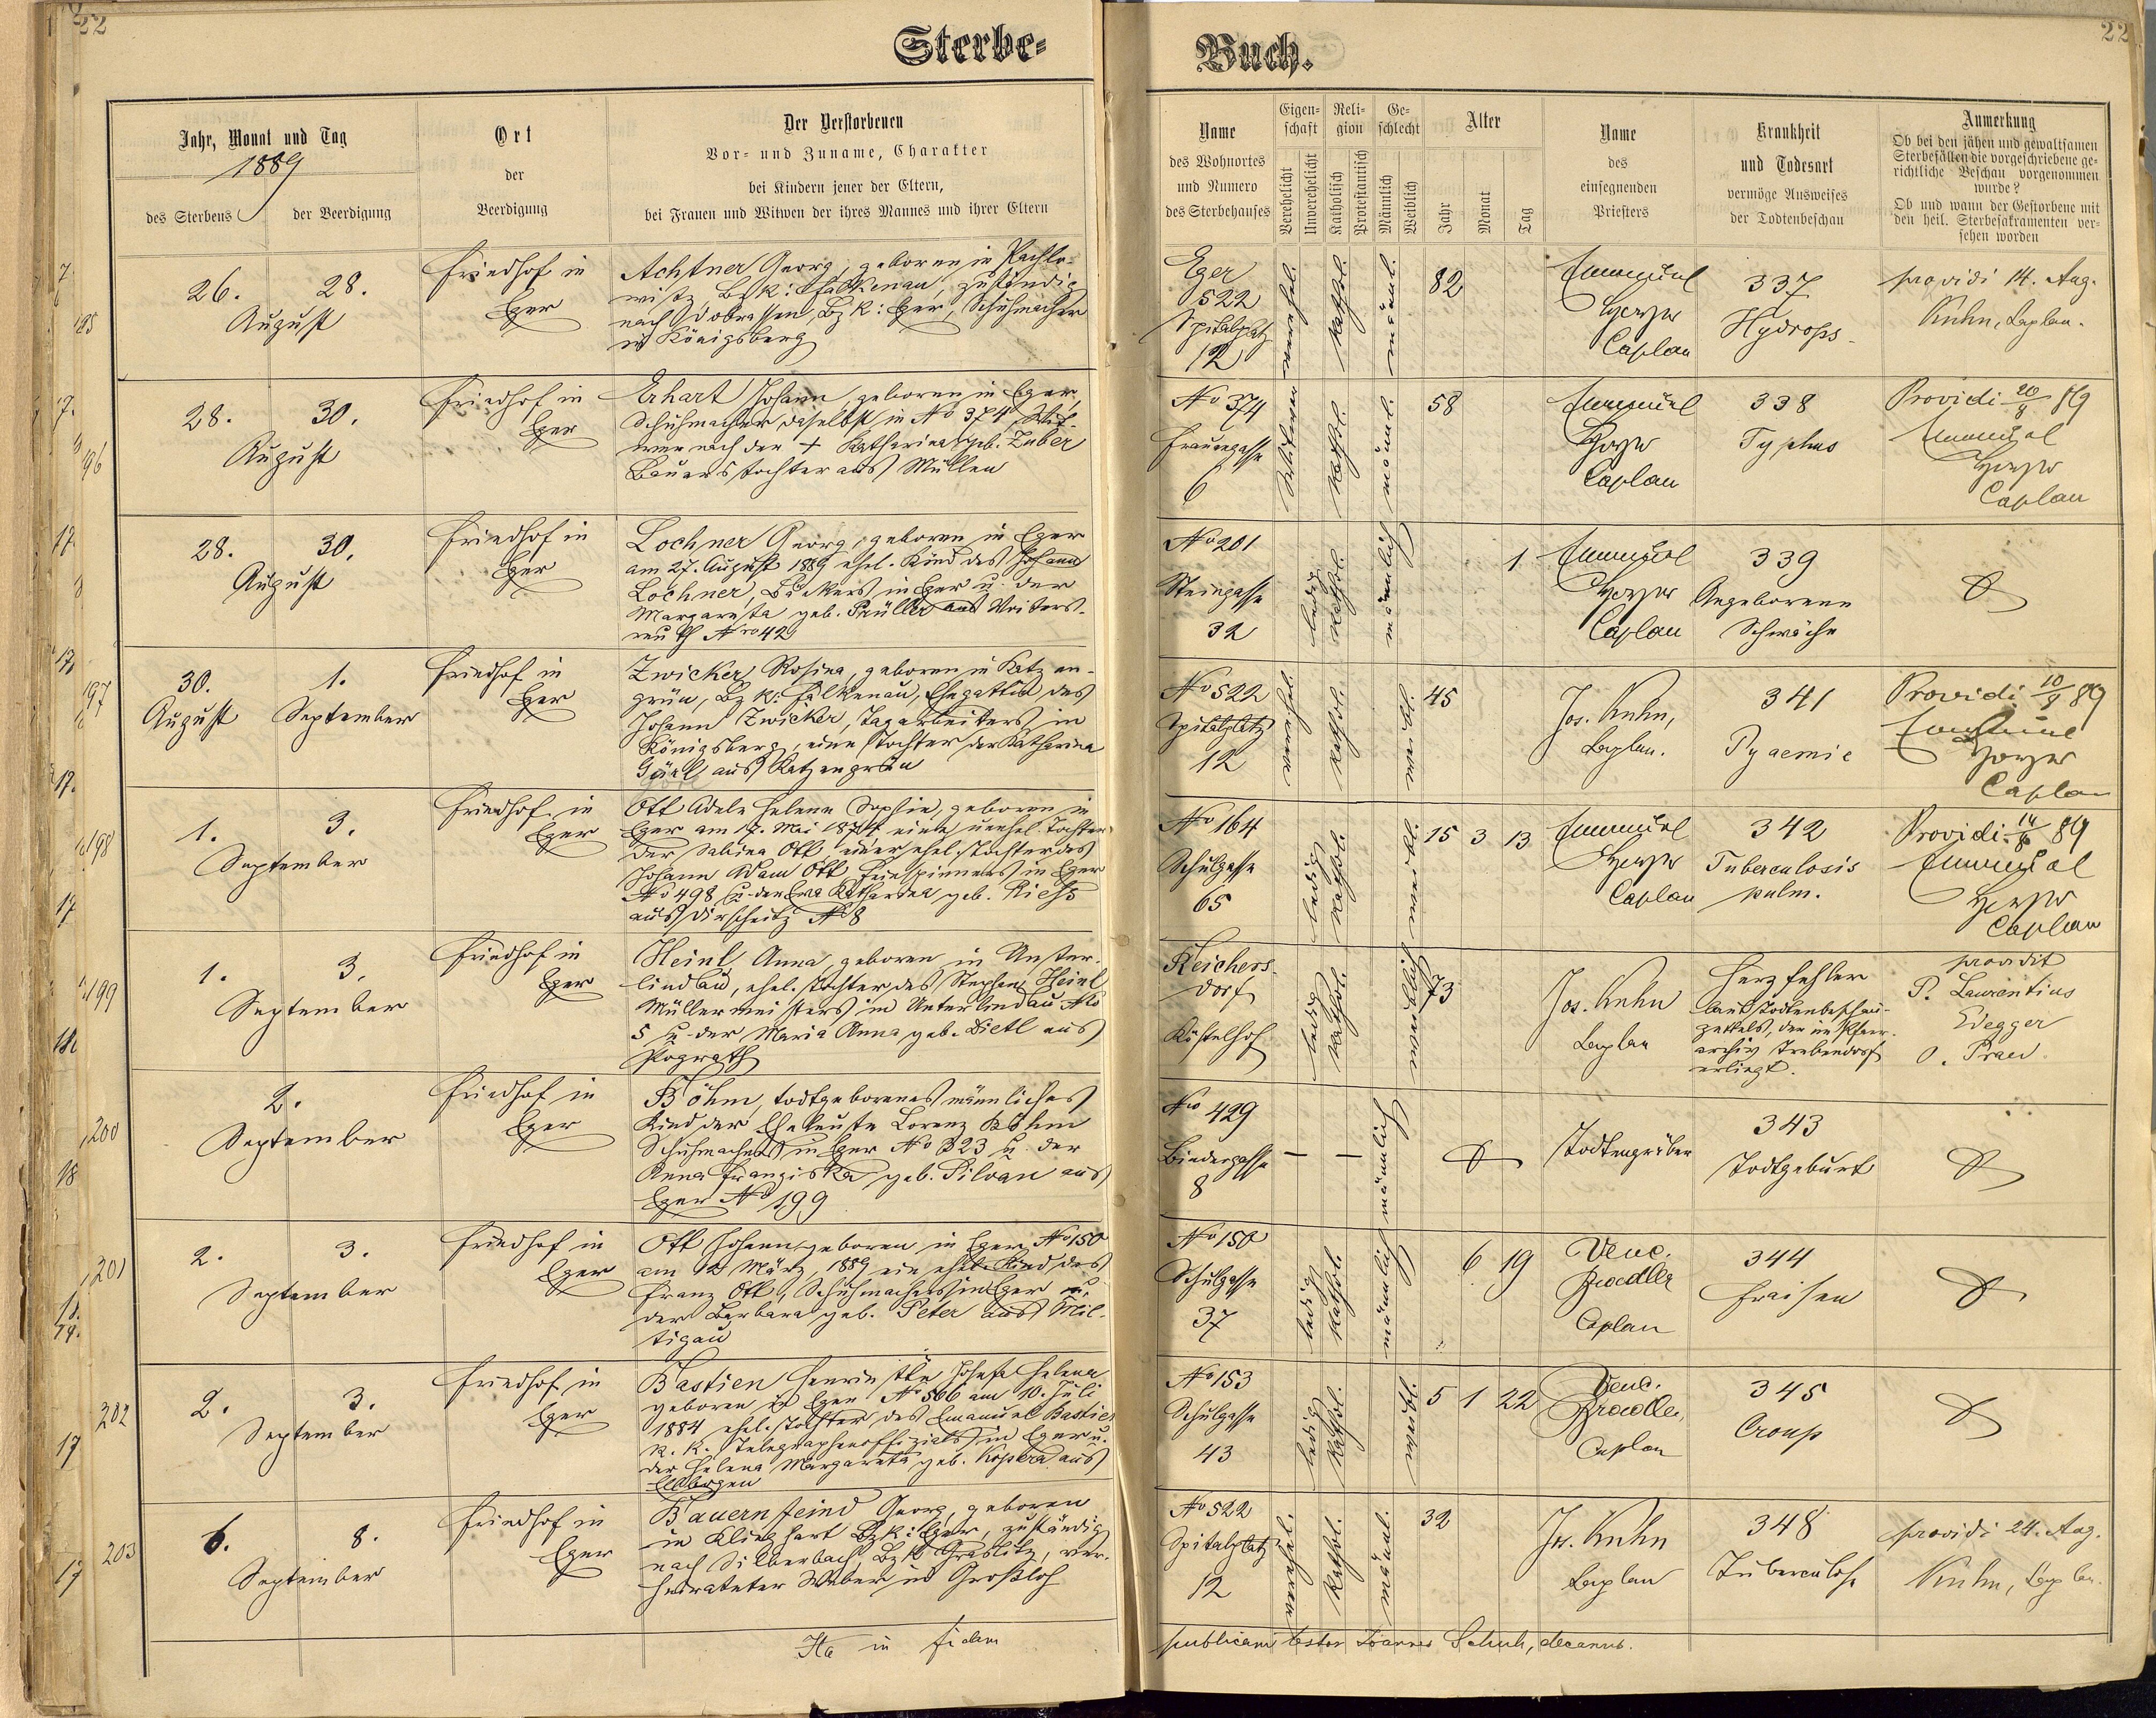 22
Sterbe-
Jahr, Monat und Tag
1889
des Sterbens
der Beerdigung
Ort
der
Beerdigung
Der Verstorbenen
Vor- und Zuname, Charakter
bei Kindern jener der Eltern,
bei Frauen und Witwen der ihres Mannes und ihrer Eltern
26. 28.
August
Friedhof in
Eger
Achtner Georg, geboren in
Bzk: Falkenau, zuständig
nach Dobrassen, Bzk: Eger, Schuhmacher
in Königsberg
28. 30.
August
Friedhof in
Eger
Erhart Johann, geboren in Eger,
Schuhmacher daselbst in No 374 Wit-
wer nach der + Katharina geb. Zuber
Bauerstochter aus Müllen
28. 30.
August
Friedhof in
Eger
Lochner Georg, geboren in Eger
am 27. August 1889 ehel. Kind des Johann
Lochner, Bäckers in Eger u. der
Margareta geb. Prüller aus
reuth Nro 42
30. 1.
August September
Friedhof in
Eger
Zwicker Rosina, geboren in Katzen-
grün, Bzk: Falkenau, Ehegattin des
Johann Zwicker, Tagarbeiters in
Königsberg, eine Tochter der Katharina
aus Katzengrün
1. 3.
September
Friedhof in
Eger
Ott Adele Helene Sophie, geboren in
Eger am 17. Mai 1874 eine unehel. Tochter
der Sabina Ott, einer ehel. Tochter des
Johann Adam Ott, Feinspinners in Eger
No 498 u. der Eva Katharina geb. Rieß
aus Dürschnitz No 8
1. 3.
September
Friedhof in
Eger
Heinl Anna, geboren in Unter-
lindau, ehel. Tochter des Stephan Heinl
Müllermeisters in Unterlindau No
5 u. der Maria Anna geb. Dietl aus
Pograth
2.
September
Friedhof in
Eger
Böhm, todtgeborenes männliches
Kind der Eheleute Lorenz Böhm
Schuhmachers in Eger No 323 u. der
Anna Franziska geb. Silvan aus
Eger No 199
2. 3.
September
Friedhof in
Eger
Ott Johann, geboren in Eger No 150
am 14 März 1889 ein ehel. Kind des
Franz Ott, Schuhmachers in Eger u.
der Barbara geb. Peter aus Mil-
tigau
2. 3.
September
Friedhof in
Eger
Bastien Henriette Josefa Helena
geboren in Eger No 566 am 10. Juli
1884 ehel. Tochter des Emanuel Bastien
k. k. Telegraphenoffizials in Eger u.
der Helena Margareta geb. Kopera aus
Ellbogen
6. 8.
September
Friedhof in
Eger
Bauernfeind Georg, geboren
in Klinghart Bzk: Eger, zuständig
nach Silberbach, Bzk Graslitz, ver-
heirateter Weber in Großloh
Ita in fidem
197
198
199
200
201
202
203
Buch.
22
Name
des Wohnortes
und Numero
des Sterbehauses
Eigen-
schaft
Verehelicht
Unverehelicht
Reli-
gion
Katholisch
Protestantisch
Ge-
schlecht
Männlich
Weiblich
Alter
Jahr
Monat
Tag
Name
des
einsegnenden
Priesters
Krankheit
und Todesart
vermöge Ausweises
der Todtenbeschau
Anmerkung
Ob bei den jähen und gewaltsamen
Sterbefällen die vorgeschriebene ge-
richtliche Beschau vorgenommen
wurde?
Ob und wann der Gestorbene mit
den heil. Sterbesakramenten ver-
sehen worden
Eger
522
Spitalplatz
12
verehel.
kathol.
männl.
82
Emanuel
Hoyer
Caplan
337
Hydrops
providi 14. Aug.
Kuhn, Caplan.
No 374
Frauengasse
6
Witwer
kathol.
männl.
58
Emanuel
Hoyer
Caplan
338
Typhus
Providi 20/8 89
Emanuel
Hoyer
Caplan
No 201
Steingasse
32
ledig
kathol.
männlich
1
Emanuel
Hoyer
Caplan
339
Angeborene
Schwäche
No 522
Spitalplatz
12
verehel.
kathol.
weibl.
45
Jos. Kuhn,
Caplan.
341
Pyaemie
Providi 10/8 89
Emanuel
Hoyer
Caplan
No 164
Schulgasse
65
ledig
kathol.
weibl.
15 3 13
Emanuel
Hoyer
Caplan
342
Tuberculosis
pulm.
Providi 14/8 89
Emanuel
Hoyer
Caplan
Reichers-
dorf
ledig
kathol.
weiblich
73
Jos. Kuhn
Caplan
Herzfehler
laut Todtenbeschau-
zettels, der im Pfarr-
archiv Trebendorf
erliegt.
providit
P. Laurentius
Edegger
O. Praed.
No 429
Bindergasse
8
— —
männlich
Todtengräber
343
Todtgeburt
No 150
Schulgasse
37
ledig
kathol.
männlich
6 19
Venc.
Caplan
344
Fraisen
No 153
Schulgasse
43
ledig
kathol.
weibl.
5 1 22
Venc.
Caplan
345
Croup
No 522
Spitalplatz
12
verehel.
kathol.
männl.
32
Jos. Kuhn
Caplan
348
Tuberculose
providi 24. Aug.
Kuhn, Caplan.
publicam testor Joannes Schuh, decanus.